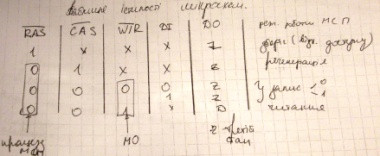 таблиця істиності мікросхеми.
RAS CAS W/R DI DO реж. роботи МСП
1 x x x Z збері (
0 1 x x Z регенерація
0 0 0 0 Z запис 0
1 Z 1
0 0 1 x D читання
МО Z
стан